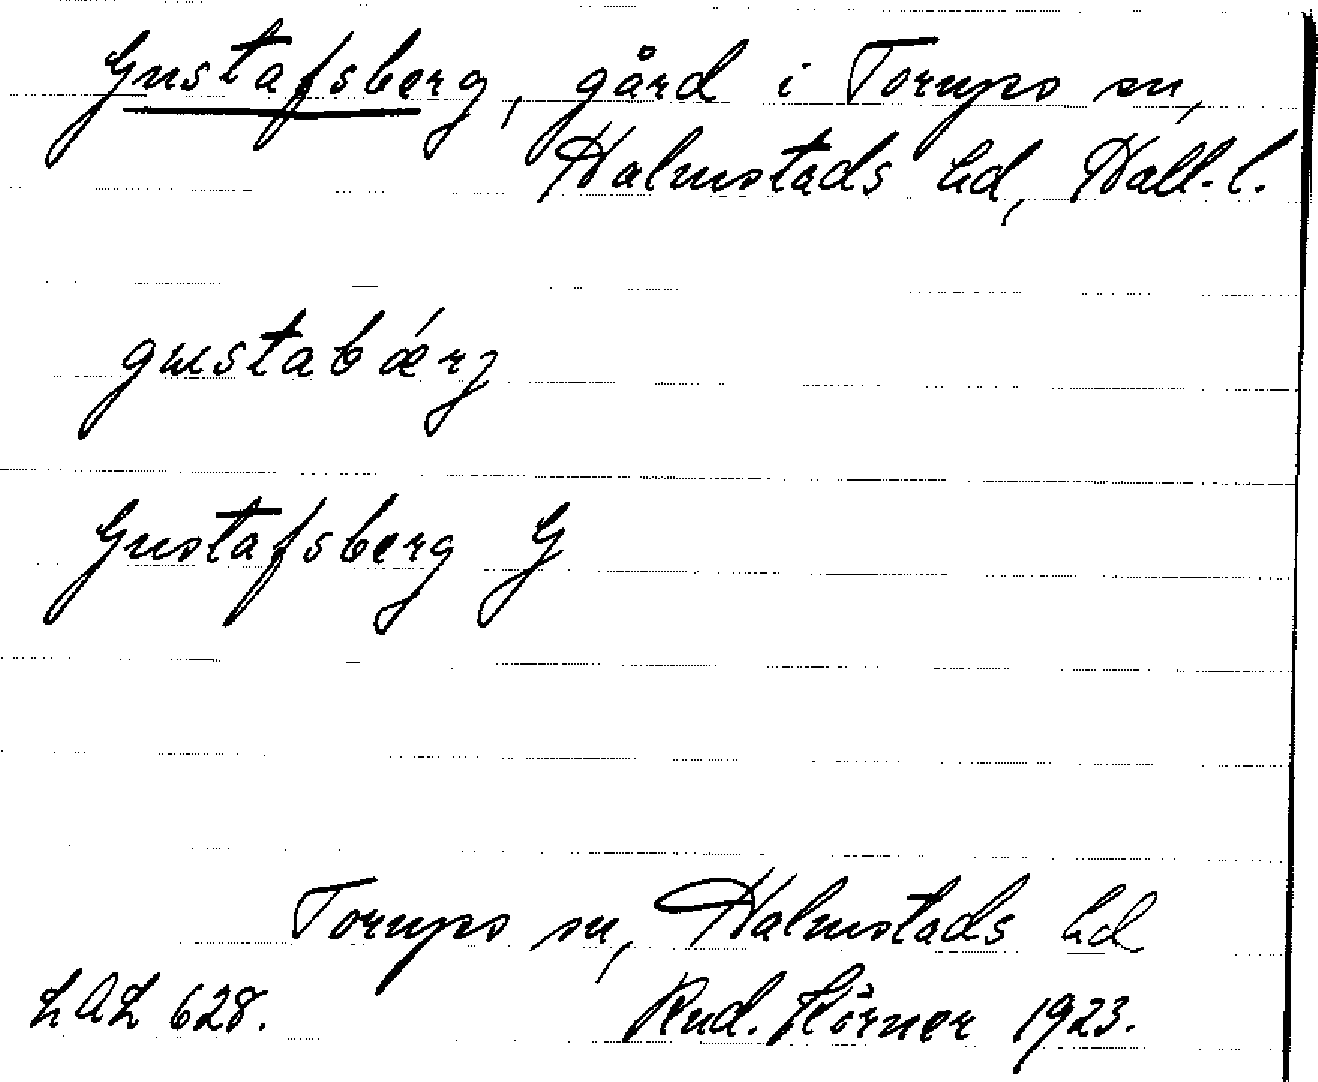 Gustafsberg, gård i Torups sn,
Halmstads hd, Hall. l.
gustabǽrj
Gustafsberg G
Torups sn, Halmstads hd
LAL 628. Rud. Hörner 1923.